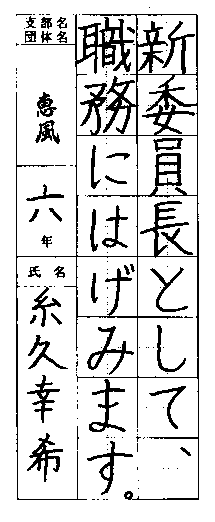 新委員長として、
職務にはげみます。
支部名
団体名
恵風
六年
氏名
糸久幸希